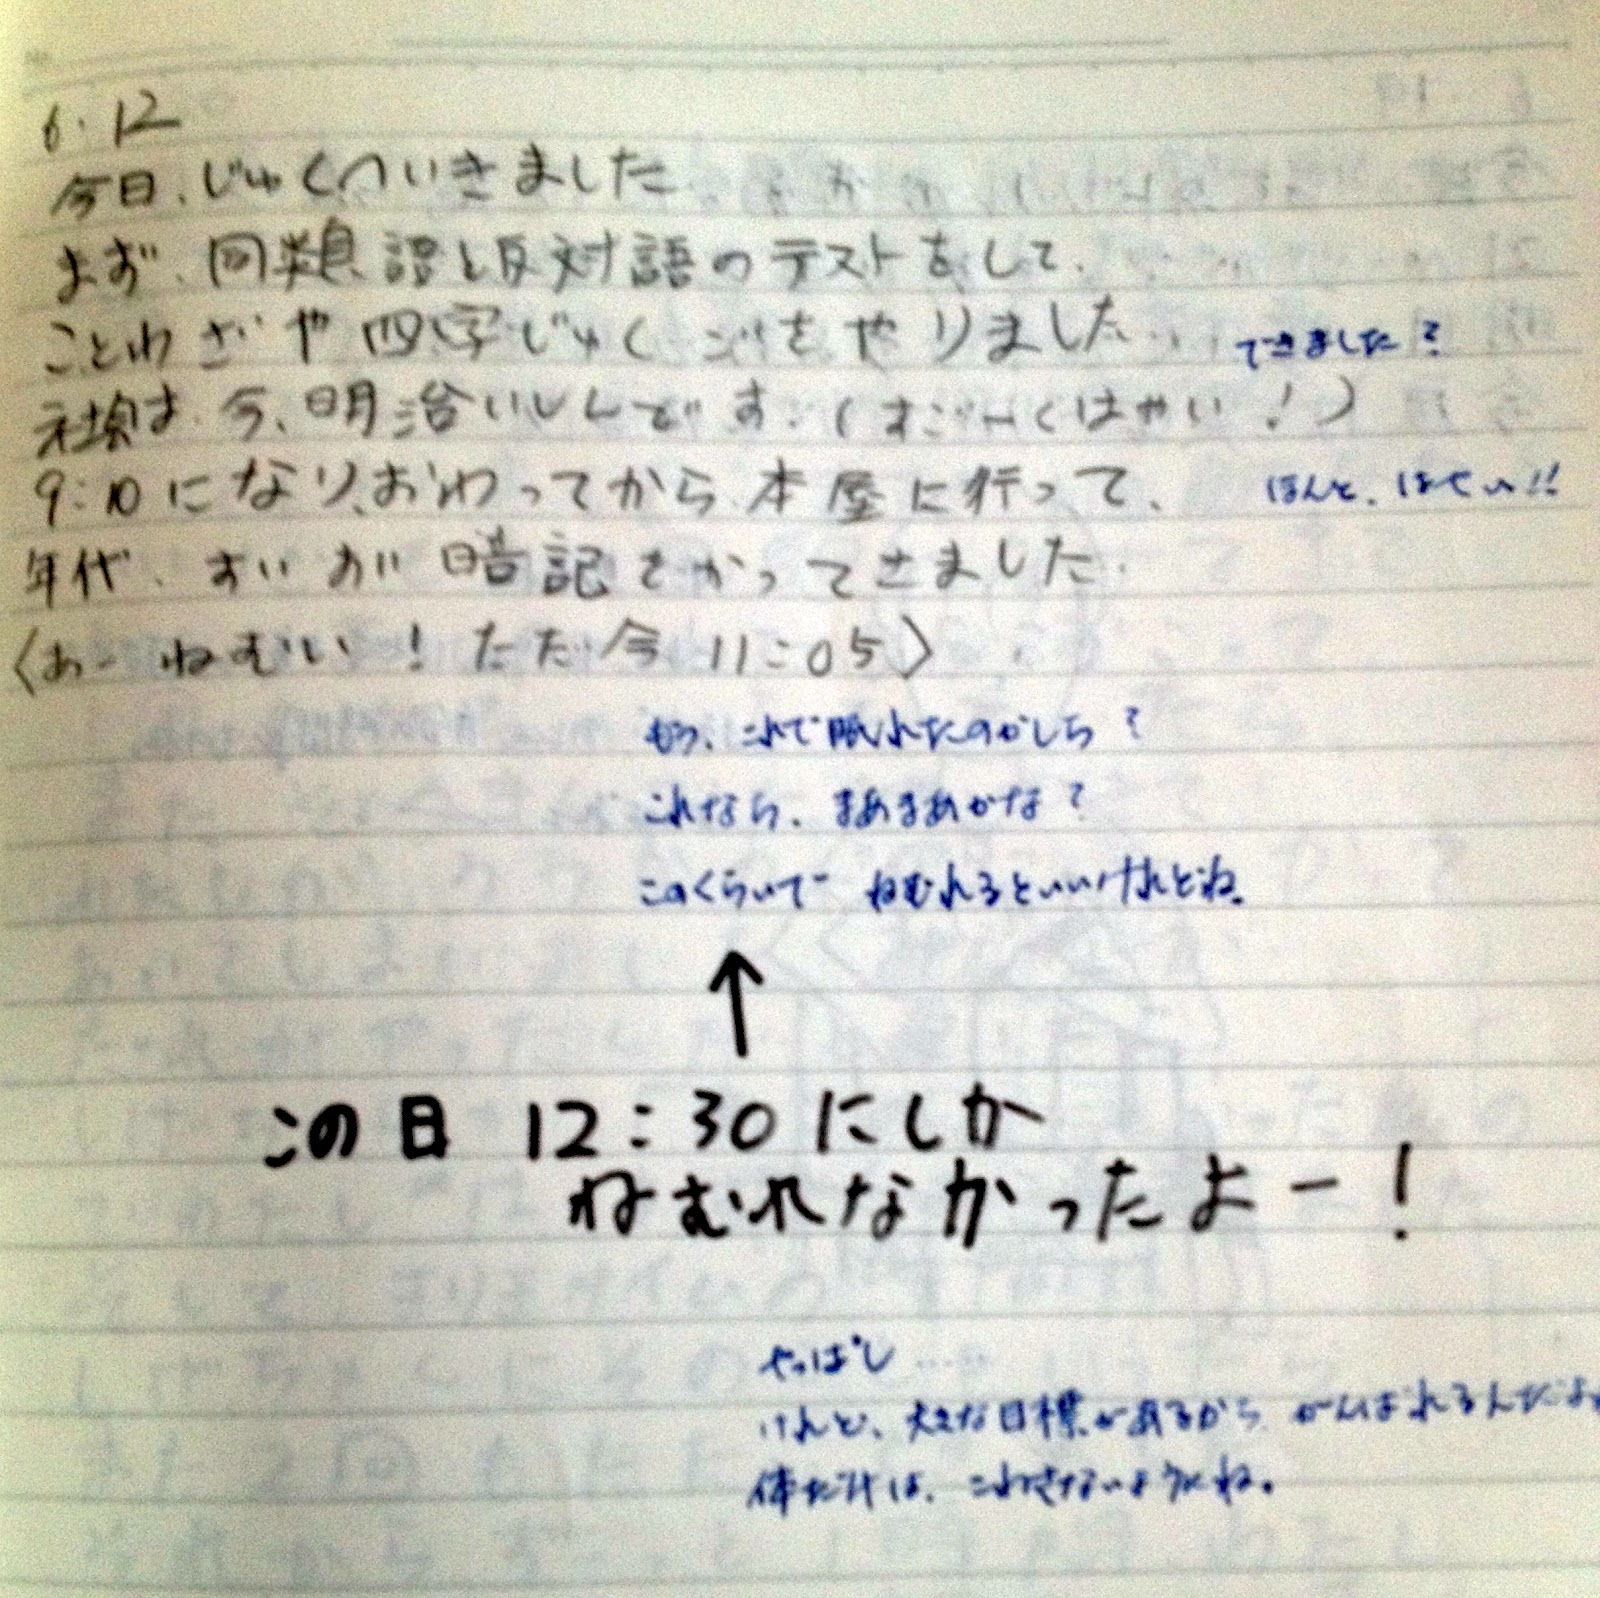 6.12
今日、じゅくへいきました
まず、同類語と反対語のテストをして、
ことわざや四字じゅくごをやりました
できました?
社会は、今、明治いしんです。(すごーくはやい!)
9:10になり、おわってから本屋に行って、
ほんと、はやい!!
年代、すいがい暗記をかってきました。
〈あーねむい!ただ今11:05〉
もう、これで眠れたのかしら?
これなら、まあまあかな?
このくらいで ねむれるといいけれどね。
↑
この日 12:30にしか
ねむれなかったよー!
やっぱし……
けれど、大きな目標があるから がんばれるんだよね
体だけは、こわさないようにね。